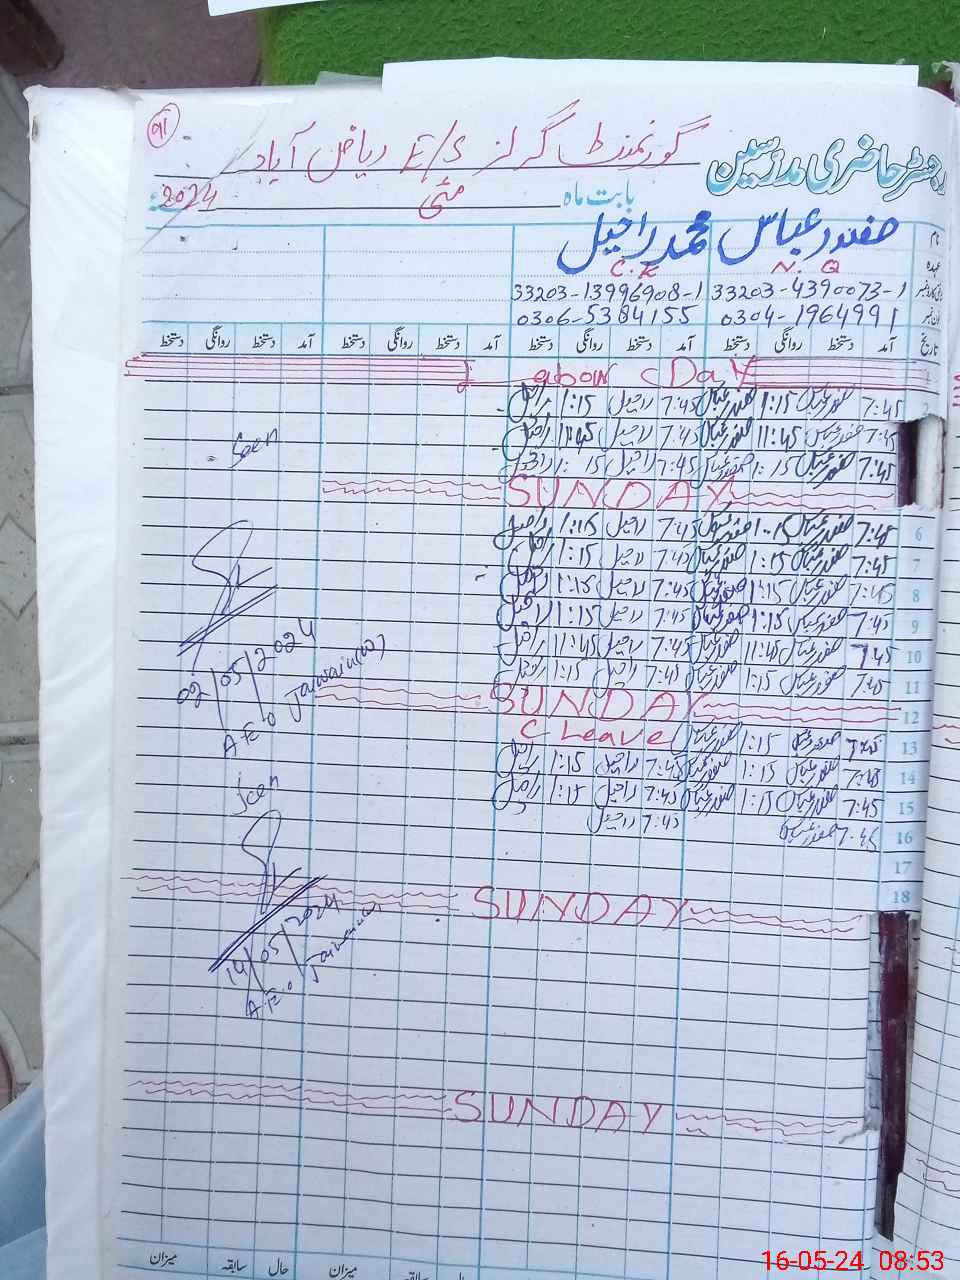 ۹۱
گورنمنٹ گرلز E/S ریاض آباد
رجسٹر حاضری مدرسین
بابت ماہ مئی 2024ء
نام صفدر عباس محمد راحیل
عہدہ N. Q C. K
33203-4390073-1 33203-13996908-1
فون نمبر 0304-1964991 0306-5384155
تاریخ آمد دستخط روانگی دستخط آمد دستخط روانگی دستخط آمد دستخط روانگی دستخط
1 Labour Day
7:45 صفدر عباس 1:15 صفدر عباس 7:45 راحیل 1:15 راحیل
7:45 صفدر عباس 11:45 صفدر عباس 7:45 راحیل 11:45 راحیل
7:45 صفدر عباس 1:15 صفدر عباس 7:45 راحیل 1:15 راحیل
Seen
SUNDAY
6 7:45 صفدر عباس 1:15 صفدر عباس 7:45 راحیل 1:15 راحیل
7 7:45 صفدر عباس 1:15 صفدر عباس 7:45 راحیل 1:15 راحیل
8 7:45 صفدر عباس 1:15 صفدر عباس 7:45 راحیل 1:15 راحیل
9 7:45 صفدر عباس 1:15 صفدر عباس 7:45 راحیل 1:15 راحیل
10 7:45 صفدر عباس 11:45 صفدر عباس 7:45 راحیل 11:45 راحیل
11 7:45 صفدر عباس 1:15 صفدر عباس 7:45 راحیل 1:15 راحیل
02/05/2024
A.E.O Jaiwain(W)
12 SUNDAY
13 7:45 صفدر عباس 1:15 صفدر عباس C Leave
14 7:45 صفدر عباس 1:15 صفدر عباس 7:45 راحیل 1:15 راحیل
15 7:45 صفدر عباس 1:15 صفدر عباس 7:45 راحیل 1:15 راحیل
16 7:45 صفدر عباس 7:45 راحیل
Seen
17
18
SUNDAY
14/05/2024
A.E.O Jaiwain(W)
SUNDAY
میزان حال سابقہ میزان سابقہ حال
16-05-24 08:53